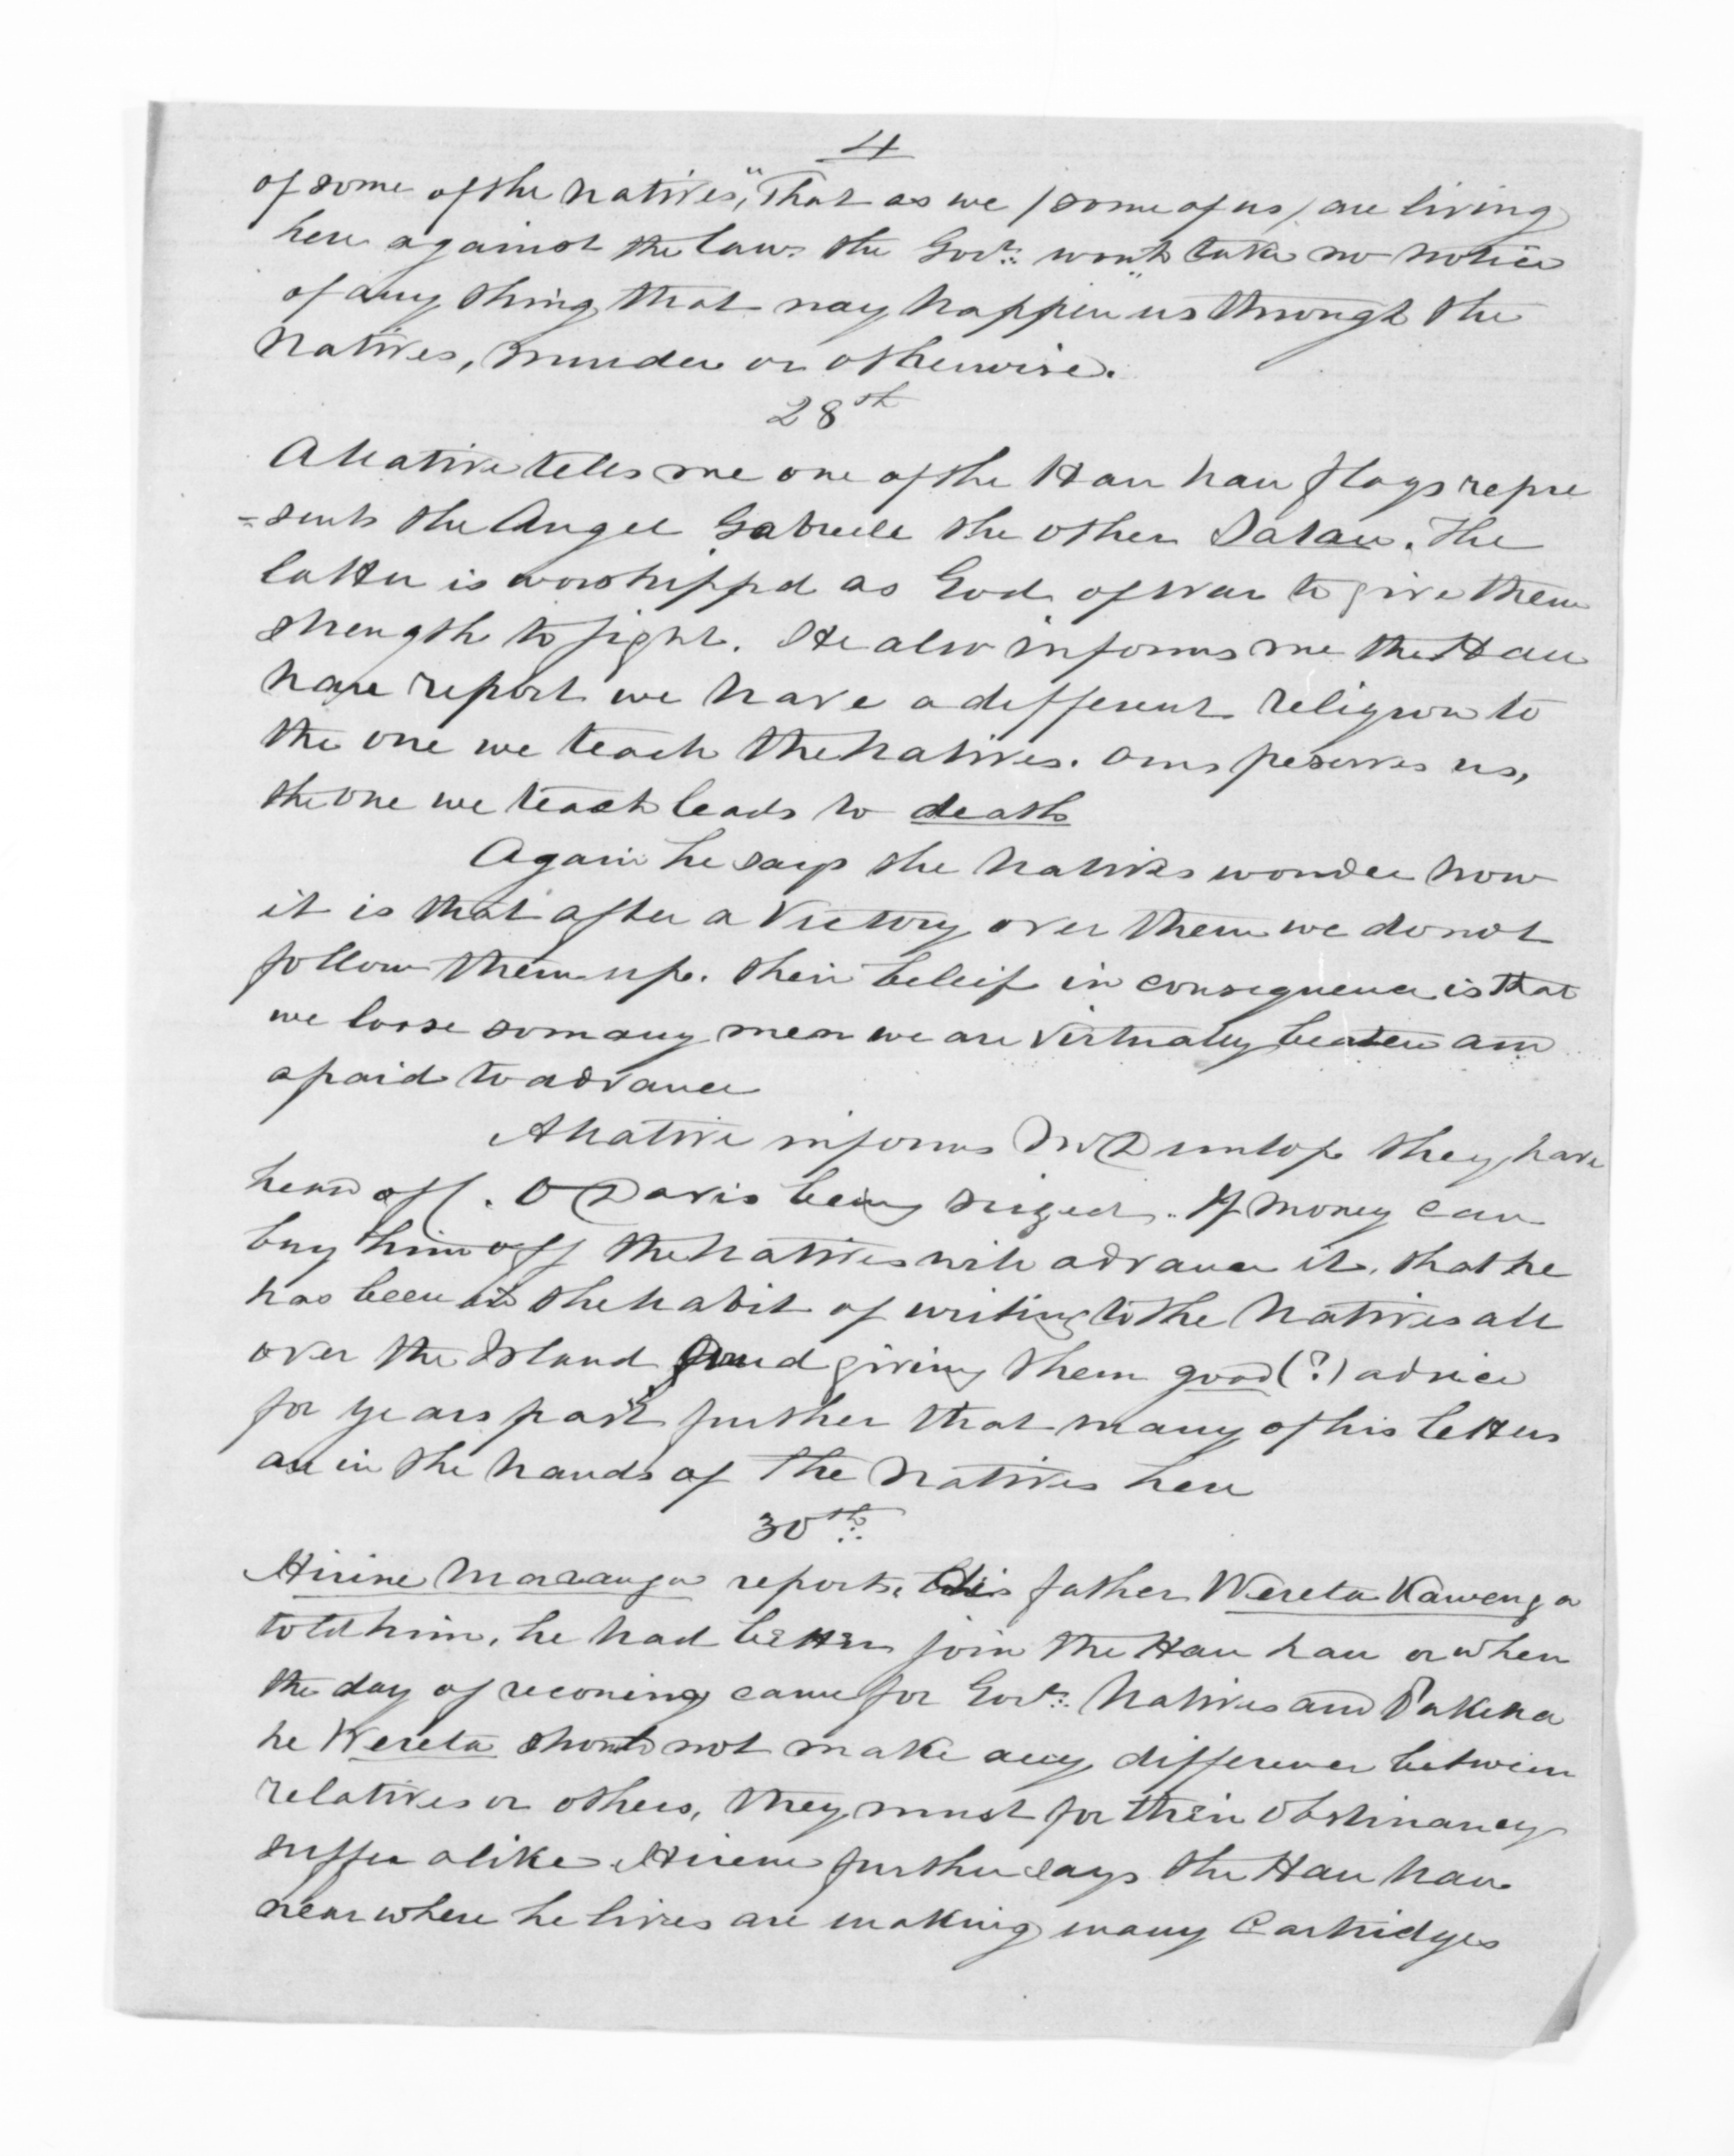 4
of some of the natives, "That as we /some of us/ are living
here against the law. the Govt: wont take no notice
of any thing that may happen" us through the
Natives, murder or otherwise.
28th
A Native tells me one of the Hau hau flags repre
=sents the Angel Gabriele the other Satan. The
latter is worshippd as God of War to give them
strength to fight. He also informs me the Hau
hau report we have a different religion to
the one we teach the Natives. Ours peserves us,
the one we teach leads to death
Again he says the Natives wonder how
it is that after a Victory over them we do not
follow them up. Their beleif in consequence is that
we loose so many men we are virtually beaten and
afraid to advance
A Native informs Mr Dunlop they have
heard of C. O Davis being seized. If money can
buy him off the Natives will advance it. that he
has been in the habit of writing to the Natives all
over the Island and giving them good (?) advice
for years past further that many of his letters
are in the hands of the Natives here
30th:
Hirine Maraanga reports, His father Wereta Kawenga
told him, he had better join the Hau hau or when
the day of reconing came for Govt: Natives and Pakeha
he Wereta should not make any difference between
relatives or others, they must for their Obstinancy
suffer alike. Hirene further says the Hau hau
near where he lives are making many Cartridges